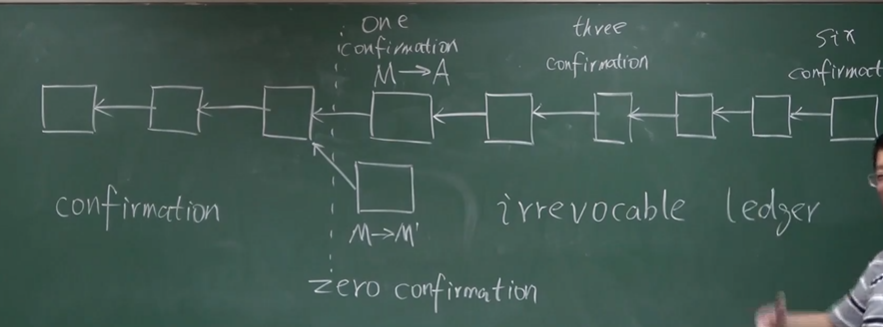 one
confirmation
M→A
three
confirmation
six
confirmat
confirmation
M→M'
irrevocable ledger
zero confirmation